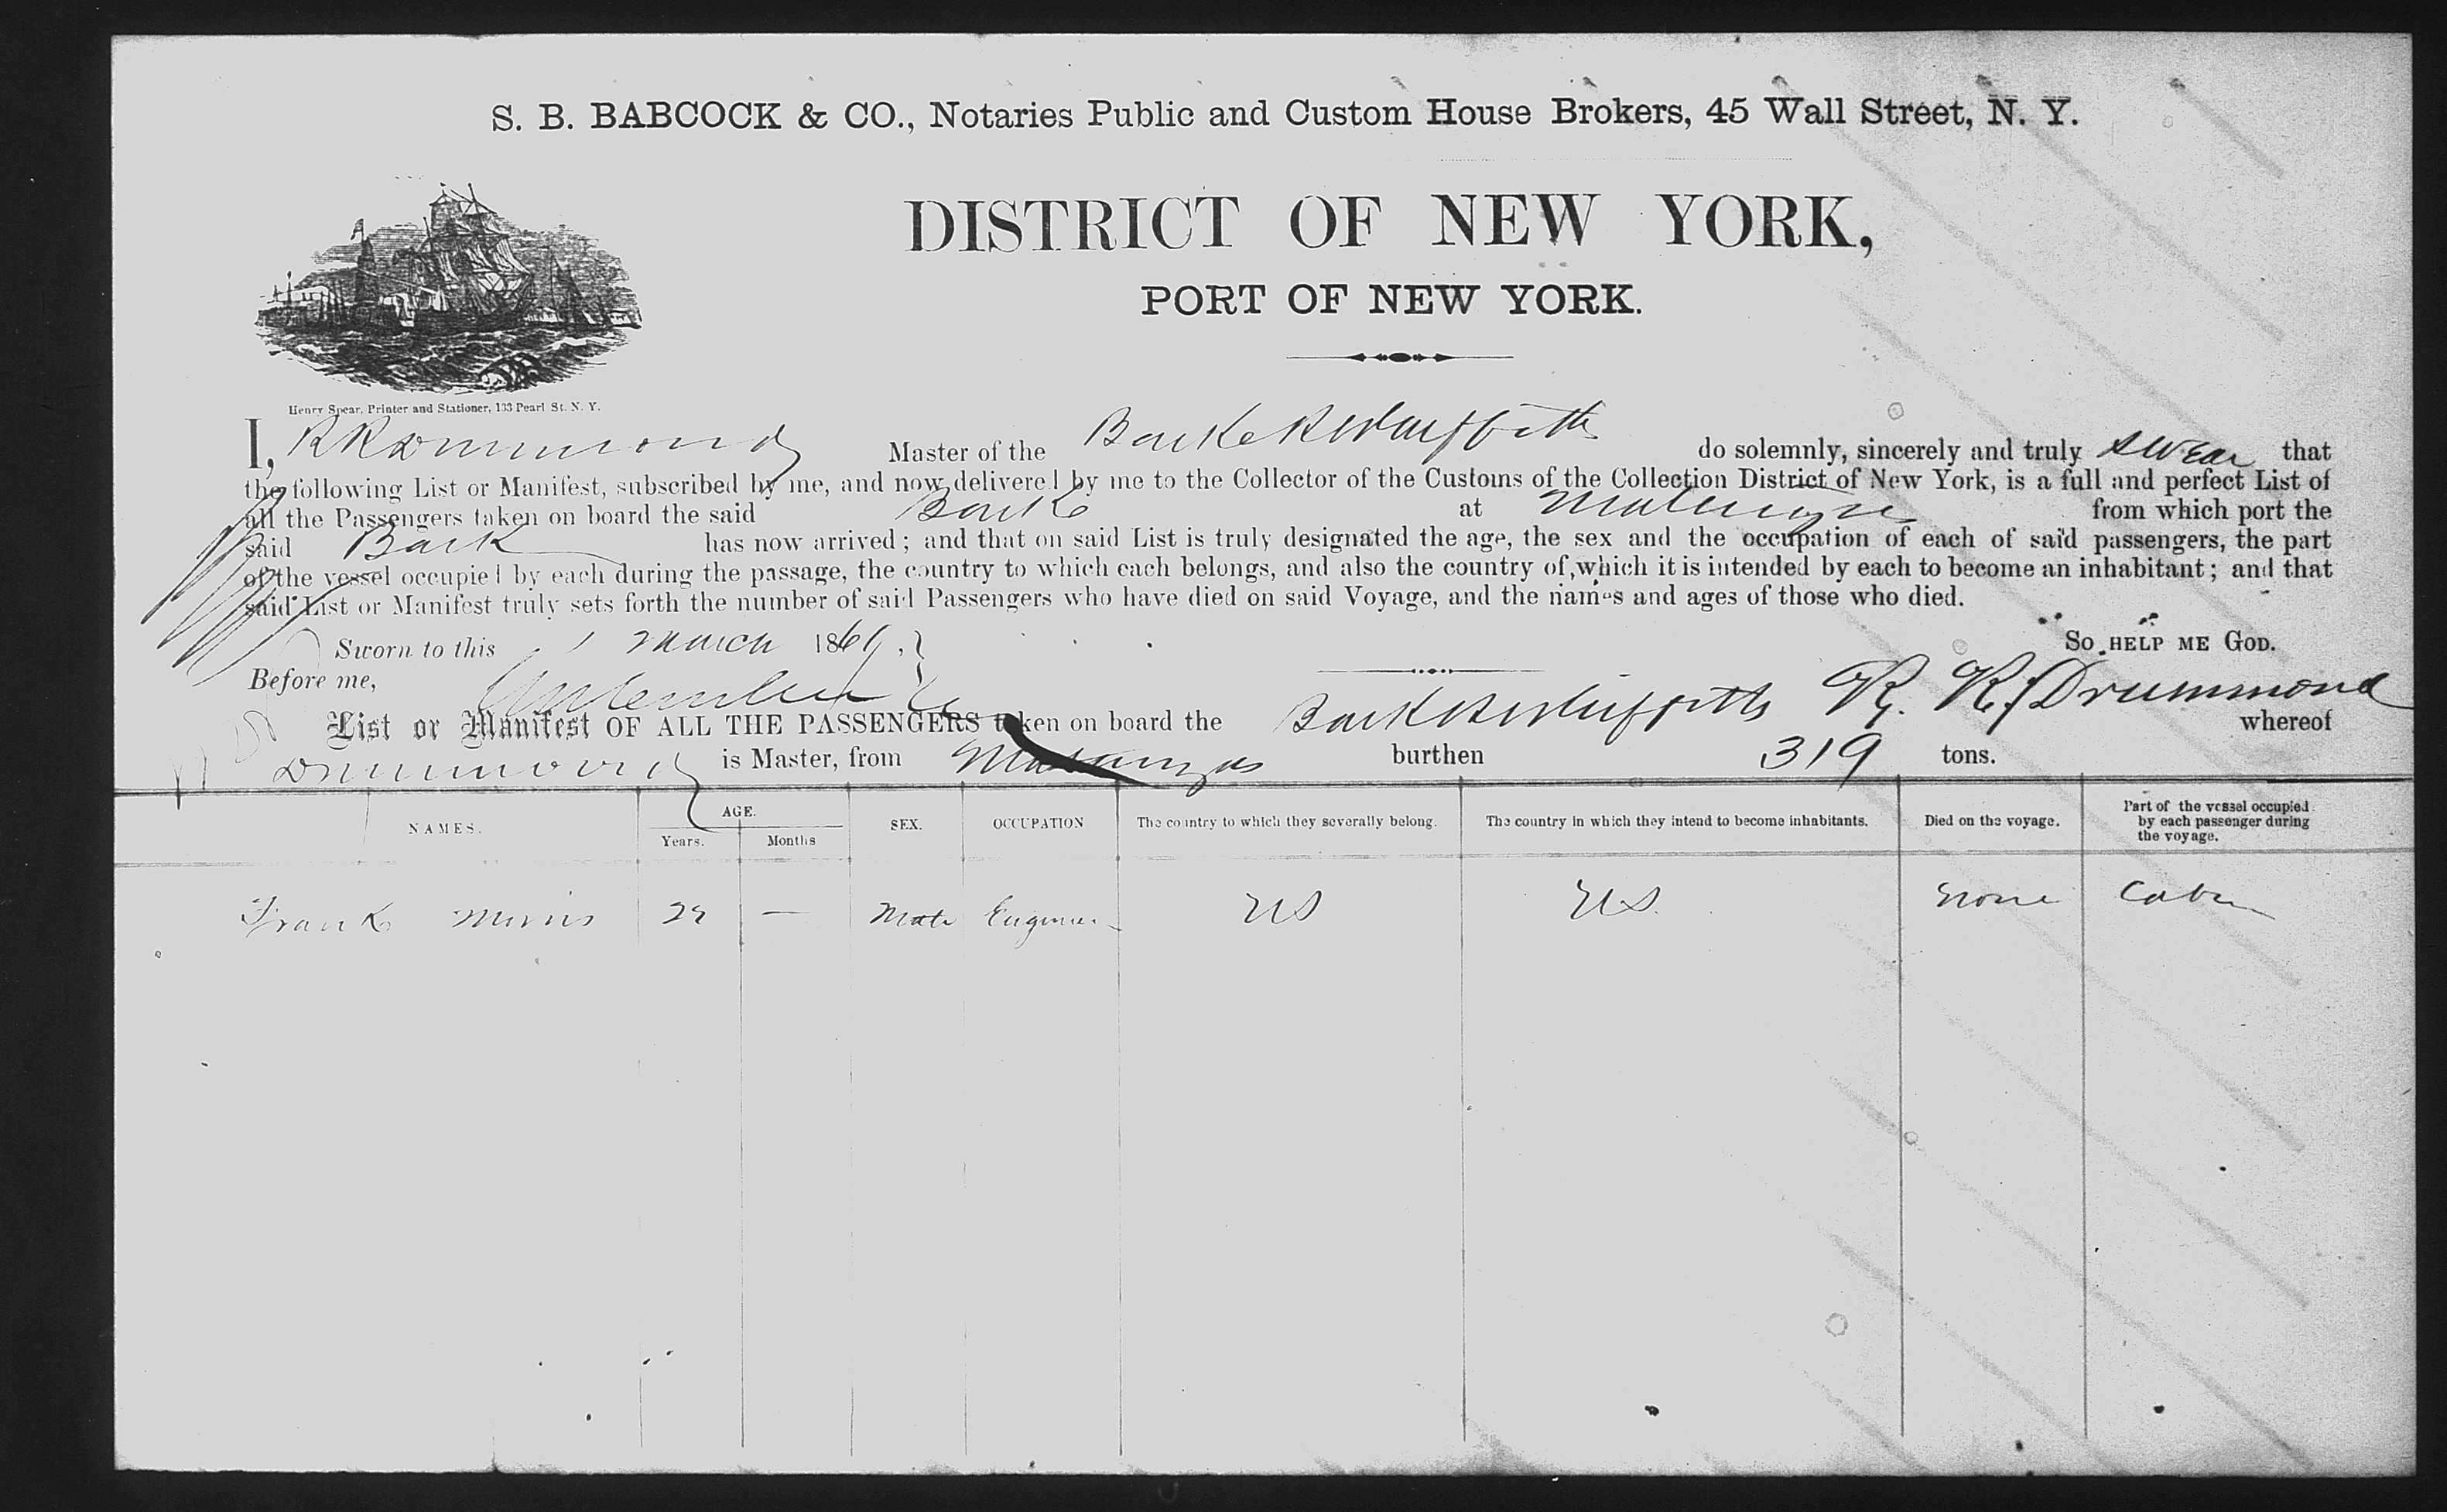 S. B. BABCOCK & CO., Notaries Public and Custom House Brokers, 45 Wall Street, N. Y.
DISTRICT OF NEW YORK,
PORT OF NEW YORK.
Henry Spear, Printer and Stationer, 133 Pearl St. N. Y.
I, R K Drummond Master of the Bark do solemnly, sincerely and truly swear that
the following List or Manifest, subscribed by me, and now delivered by me to the Collector of the Customs of the Collection District of New York, is a full and perfect List of
all the Passengers taken on board the said Bark at Matanzas from which port the
said Bark has now arrived; and that on said List is truly designated the age, the sex and the occupation of each of said passengers, the part
of the vessel occupied by each during the passage, the country to which each belongs, and also the country of which it is intended by each to become an inhabitant; and that
said List or Manifest truly sets forth the number of said Passengers who have died on said Voyage, and the names and ages of those who died.
Sworn to this 1 March 1869, So HELP ME GOD.
Before me, R. K. Drummond
List or Manifest OF ALL THE PASSENGERS taken on board the Bark whereof
Drummond is Master, from Matanzas burthen 319 tons.
NAMES. AGE. Years. Months SEX. OCCUPATION The country to which they severally belong. The country in which they intend to become inhabitants. Died on the voyage. Part of the vessel occupied by each passenger during the voyage.
Frank — Male Engineer US US. None Cabin